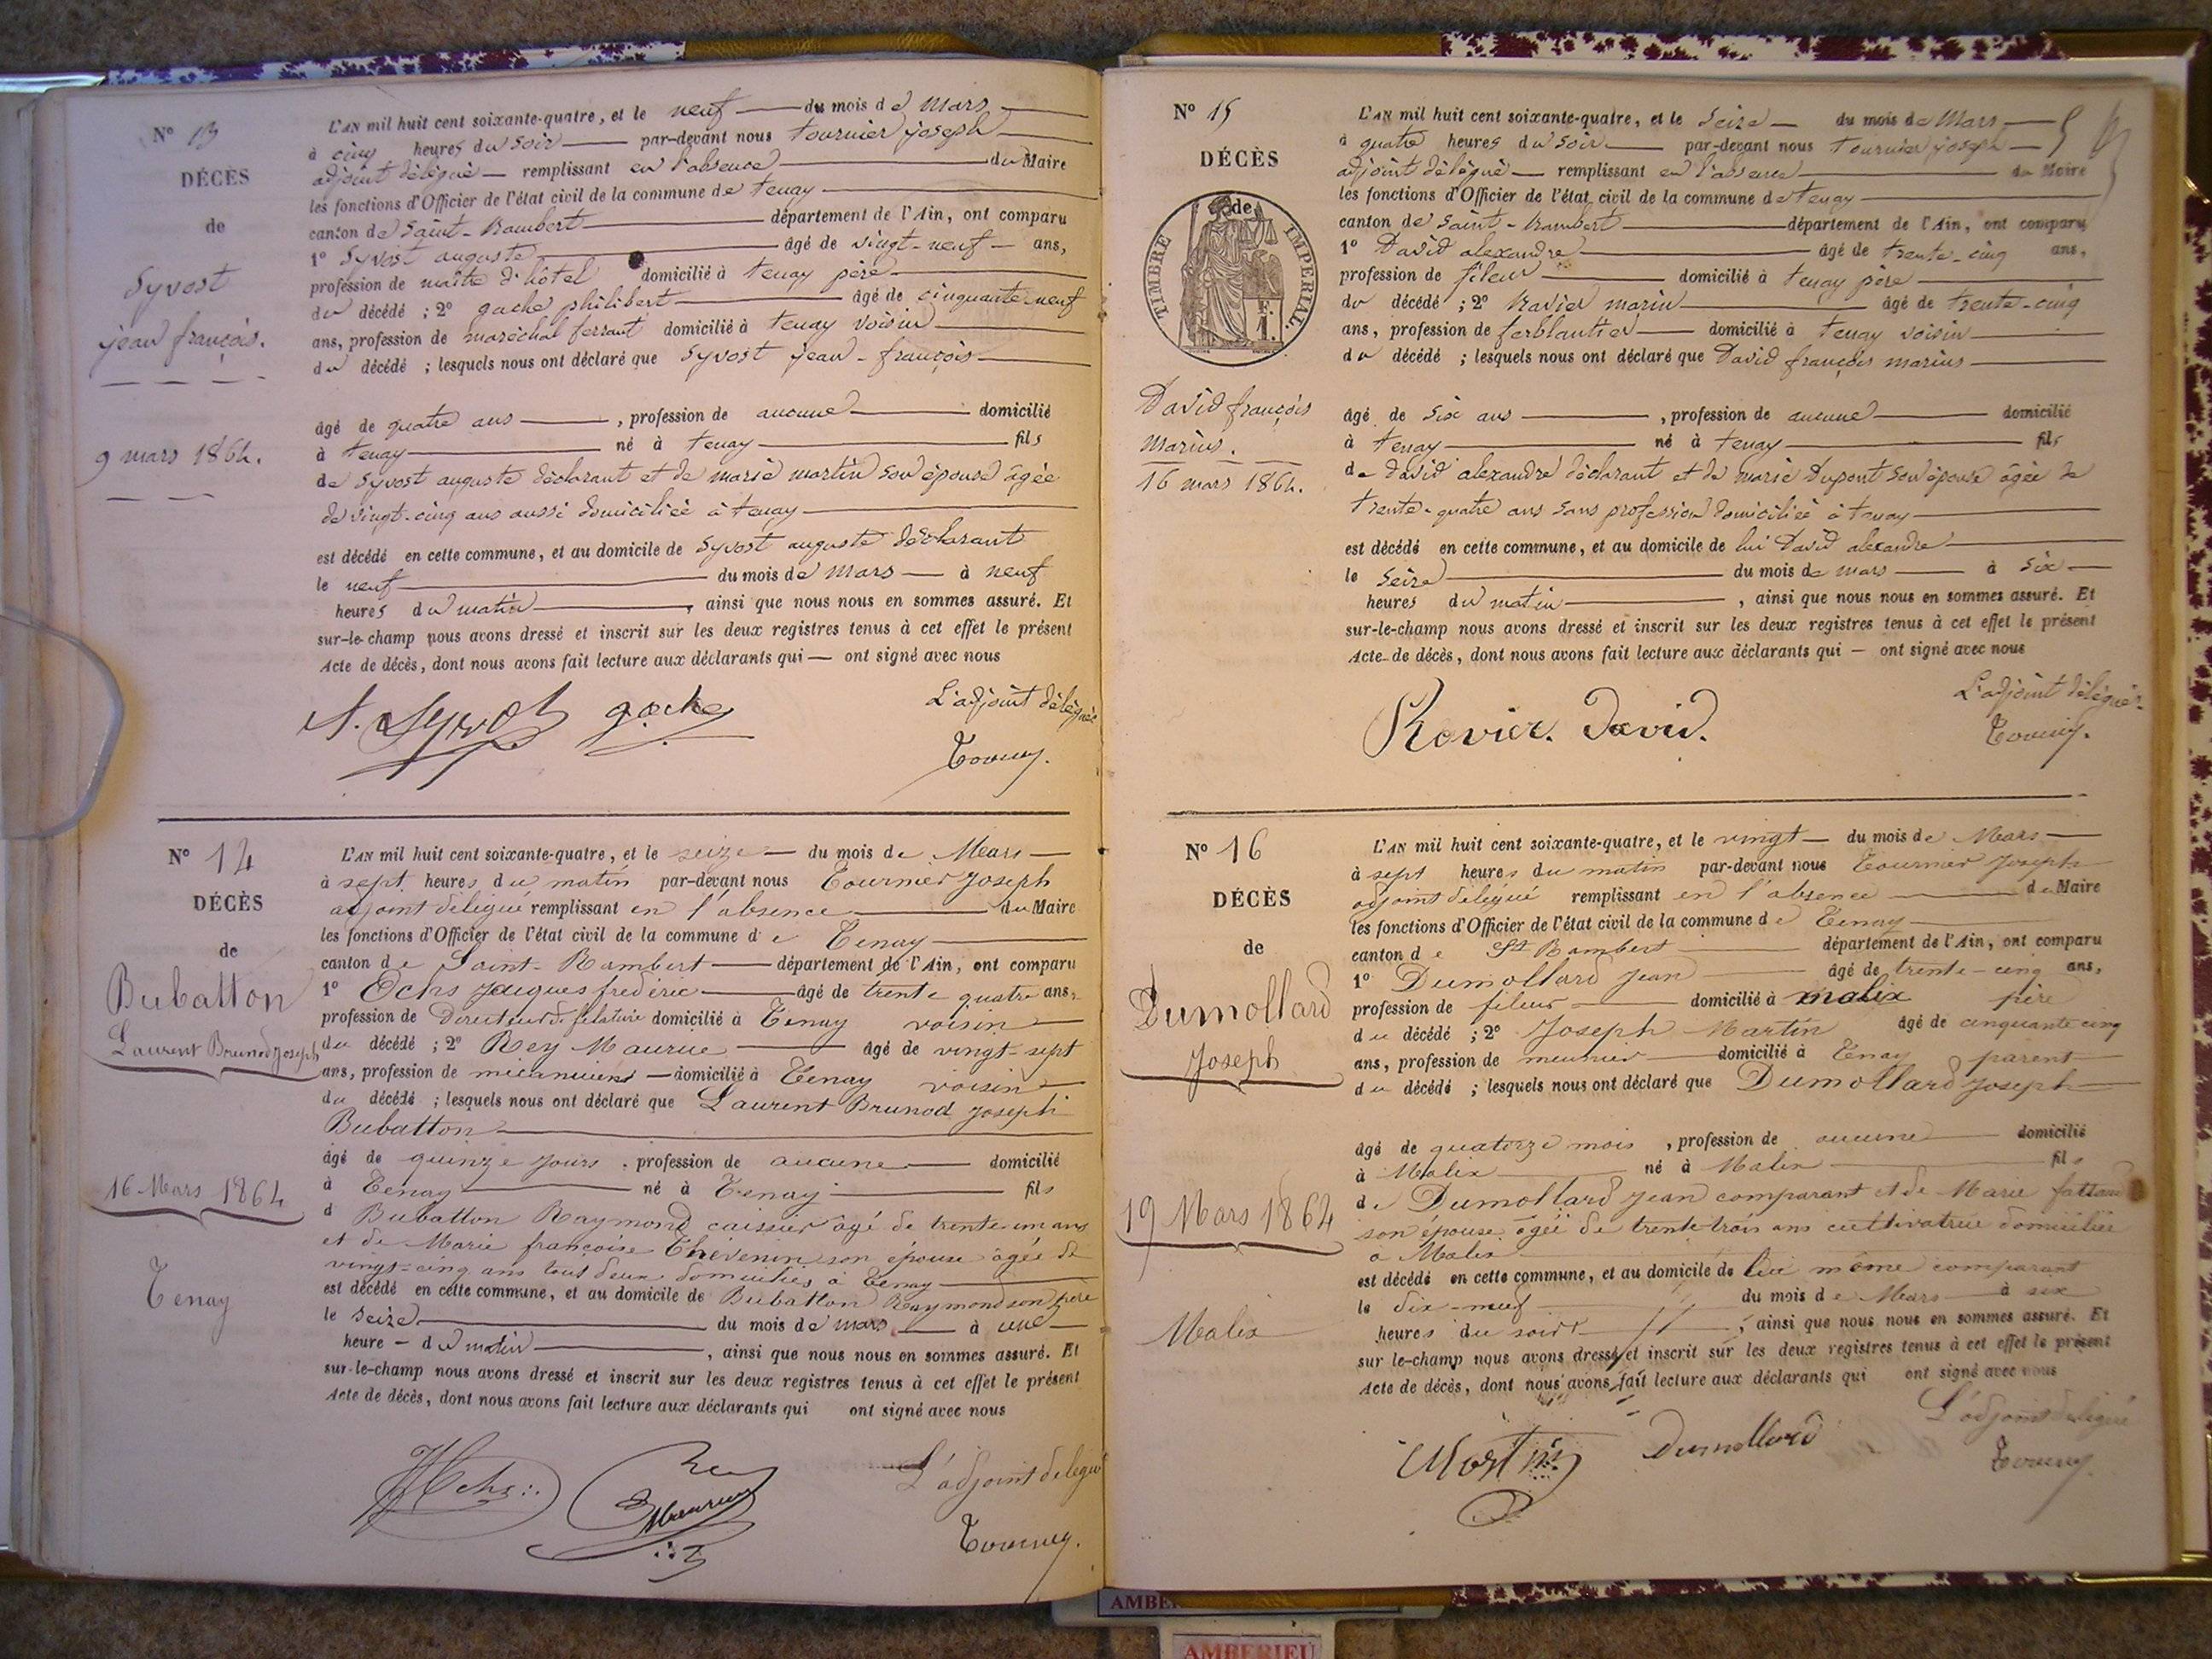 N° 13
DÉCÈS
de
Syvost
jean françois.
9 mars 1864.
L'AN mil huit cent soixante-quatre, et le neuf du mois de Mars
à cinq heures du soir par-devant nous tournier joseph
adjoint délégué remplissant en l'absence du Maire
les fonctions d'Officier de l'état civil de la commune de tenay
canton de Saint-Rambert département de l'Ain, ont comparu
1° Syvost auguste âgé de vingt-neuf ans,
profession de maître d'hôtel domicilié à tenay père
du décédé ; 2° gache philibert âgé de cinquante-neuf
ans, profession de maréchal ferrant domicilié à tenay voisin
du décédé ; lesquels nous ont déclaré que Syvost jean-françois
âgé de quatre ans , profession de aucune domicilié
à tenay né à tenay fils
de Syvost auguste déclarant et de marie martin son épouse âgée
de vingt-cinq ans aussi domiciliée à tenay
est décédé en cette commune, et au domicile de Syvost auguste déclarant
le neuf du mois de Mars à neuf
heures du matin , ainsi que nous nous en sommes assuré. Et
sur-le-champ nous avons dressé et inscrit sur les deux registres tenus à cet effet le présent
Acte de décès, dont nous avons fait lecture aux déclarants qui — ont signé avec nous
A. Syvost gache L'adjoint délégué
N° 14
DÉCÈS
de
Bubatton
Laurent Brunod Joseph
16 Mars 1864
Tenay
L'AN mil huit cent soixante-quatre, et le seize du mois de Mars
à sept heures du matin par-devant nous Tournier Joseph
adjoint délégué remplissant en l'absence du Maire
les fonctions d'Officier de l'état civil de la commune de Tenay
canton de Saint-Rambert département de l'Ain, ont comparu
1° Ochs Jacques frederic âgé de trente quatre ans,
profession de Directeur de filature domicilié à Tenay voisin
du décédé ; 2° Rey Maurice âgé de vingt-sept
ans, profession de mecanicien domicilié à Tenay voisin
du décédé ; lesquels nous ont déclaré que Laurent Brunod Joseph
Bubatton
âgé de quinze jours , profession de aucune domicilié
à Tenay né à Tenay fils
d Bubatton Raymond caissier âgé de trente-un ans
et de Marie françoise Thevenin son épouse âgée de
vingt-cinq ans tous deux domiciliés à Tenay
est décédé en cette commune, et au domicile de Bubatton Raymond son père
le Seize du mois de mars à une
heure - du matin , ainsi que nous nous en sommes assuré. Et
sur-le-champ nous avons dressé et inscrit sur les deux registres tenus à cet effet le présent
Acte de décès, dont nous avons fait lecture aux déclarants qui ont signé avec nous
L'adjoint délégué
N° 15
DÉCÈS
de
TIMBRE IMPERIAL.
David françois
Marius.
16 mars 1864.
L'AN mil huit cent soixante-quatre, et le Seize du mois de Mars
à quatre heures du soir par-devant nous tournier joseph
adjoint délégué remplissant en l'absence du Maire
les fonctions d'Officier de l'état civil de la commune de tenay
canton de Saint-Rambert département de l'Ain, ont comparu
1° David alexandre âgé de trente-cinq ans,
profession de fileur domicilié à tenay père
du décédé ; 2° Ravier marin âgé de trente-cinq
ans, profession de ferblantier domicilié à tenay voisin
du décédé ; lesquels nous ont déclaré que David françois marius
âgé de Six ans , profession de aucune domicilié
à tenay né à tenay fils
de David alexandre déclarant et de marie Dupont son épouse âgée de
trente-quatre ans sans profession domiciliée à tenay
est décédé en cette commune, et au domicile de lui David alexandre
le Seize du mois de mars à Six
heures du matin , ainsi que nous nous en sommes assuré. Et
sur-le-champ nous avons dressé et inscrit sur les deux registres tenus à cet effet le présent
Acte de décès, dont nous avons fait lecture aux déclarants qui — ont signé avec nous
Ravier. David. L'adjoint délégué
N° 16
DÉCÈS
de
Dumollard
Joseph
19 Mars 1864
Malix
L'AN mil huit cent soixante-quatre, et le vingt du mois de Mars
à sept heures du matin par-devant nous Tournier Joseph
adjoint délégué remplissant en l'absence du Maire
les fonctions d'Officier de l'état civil de la commune de Tenay
canton de St Rambert département de l'Ain, ont comparu
1° Dumollard Jean âgé de trente-cinq ans,
profession de fileur domicilié à malix père
du décédé ; 2° Joseph Martin âgé de cinquante cinq
ans, profession de meunier domicilié à Tenay parent
du décédé ; lesquels nous ont déclaré que Dumollard Joseph
âgé de quatorze mois , profession de aucune domicilié
à Malix né à Malix fils
de Dumollard Jean comparant et de Marie
son épouse âgée de trente-trois ans cultivatrice domiciliée
a Malix
est décédé en cette commune, et au domicile de lui même comparant
le dix-neuf du mois de Mars à six
heures du soir , ainsi que nous nous en sommes assuré. Et
sur le-champ nous avons dressé et inscrit sur les deux registres tenus à cet effet le présent
Acte de décès, dont nous avons fait lecture aux déclarants qui ont signé avec nous
Martin Dumollard L'adjoint délégué
AMBERIEU